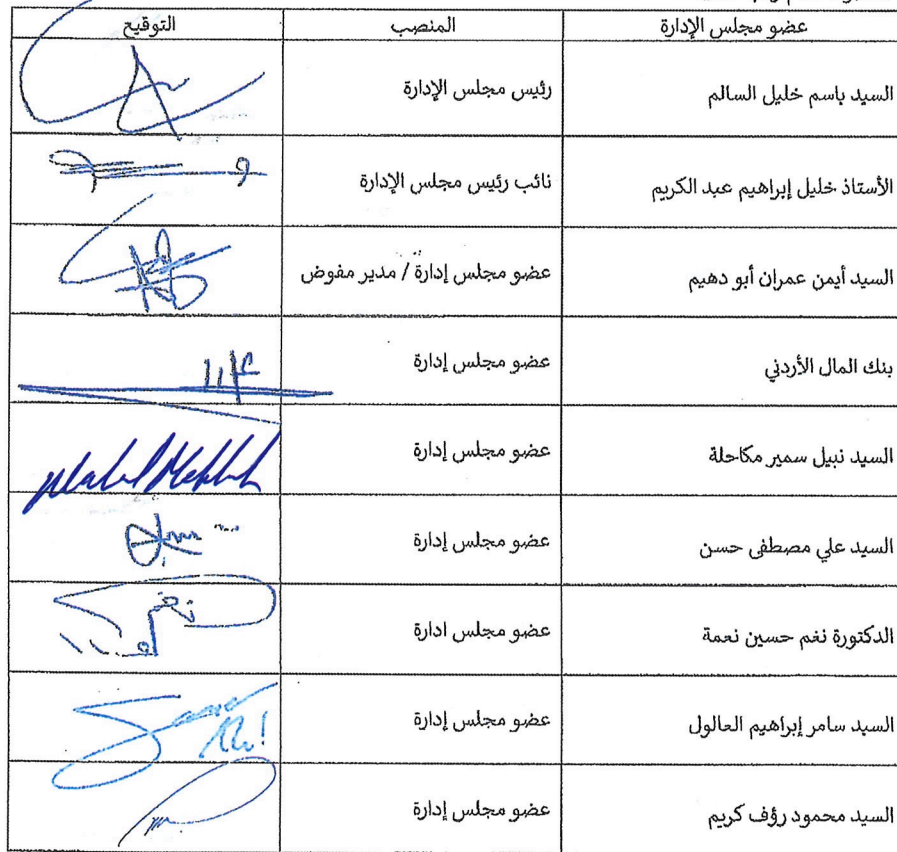 عضو مجلس الإدارة المنصب التوقيع
السيد باسم خليل السالم رئيس مجلس الإدارة
الأستاذ خليل إبراهيم عبد الكريم نائب رئيس مجلس الإدارة
السيد أيمن عمران أبو دهيم عضو مجلس إدارة / مدير مفوض
بنك المال الأردني عضو مجلس إدارة
السيد نبيل سمير مكاحلة عضو مجلس إدارة
السيد علي مصطفى حسن عضو مجلس إدارة
الدكتورة نغم حسين نعمة عضو مجلس ادارة
السيد سامر إبراهيم العالول عضو مجلس إدارة
السيد محمود رؤف كريم عضو مجلس إدارة